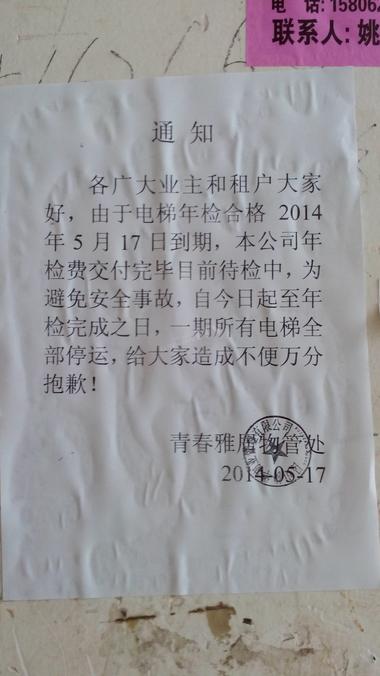 电 话: 15806
联系人: 姚
通 知
各广大业主和租户大家
好，由于电梯年检合格 2014
年 5 月 17 日到期，本公司年
检费交付完毕目前待检中，为
避免安全事故，自今日起至年
检完成之日，一期所有电梯全
部停运，给大家造成不便万分
抱歉！
青春雅居物管处
有限公司
2014-05-17